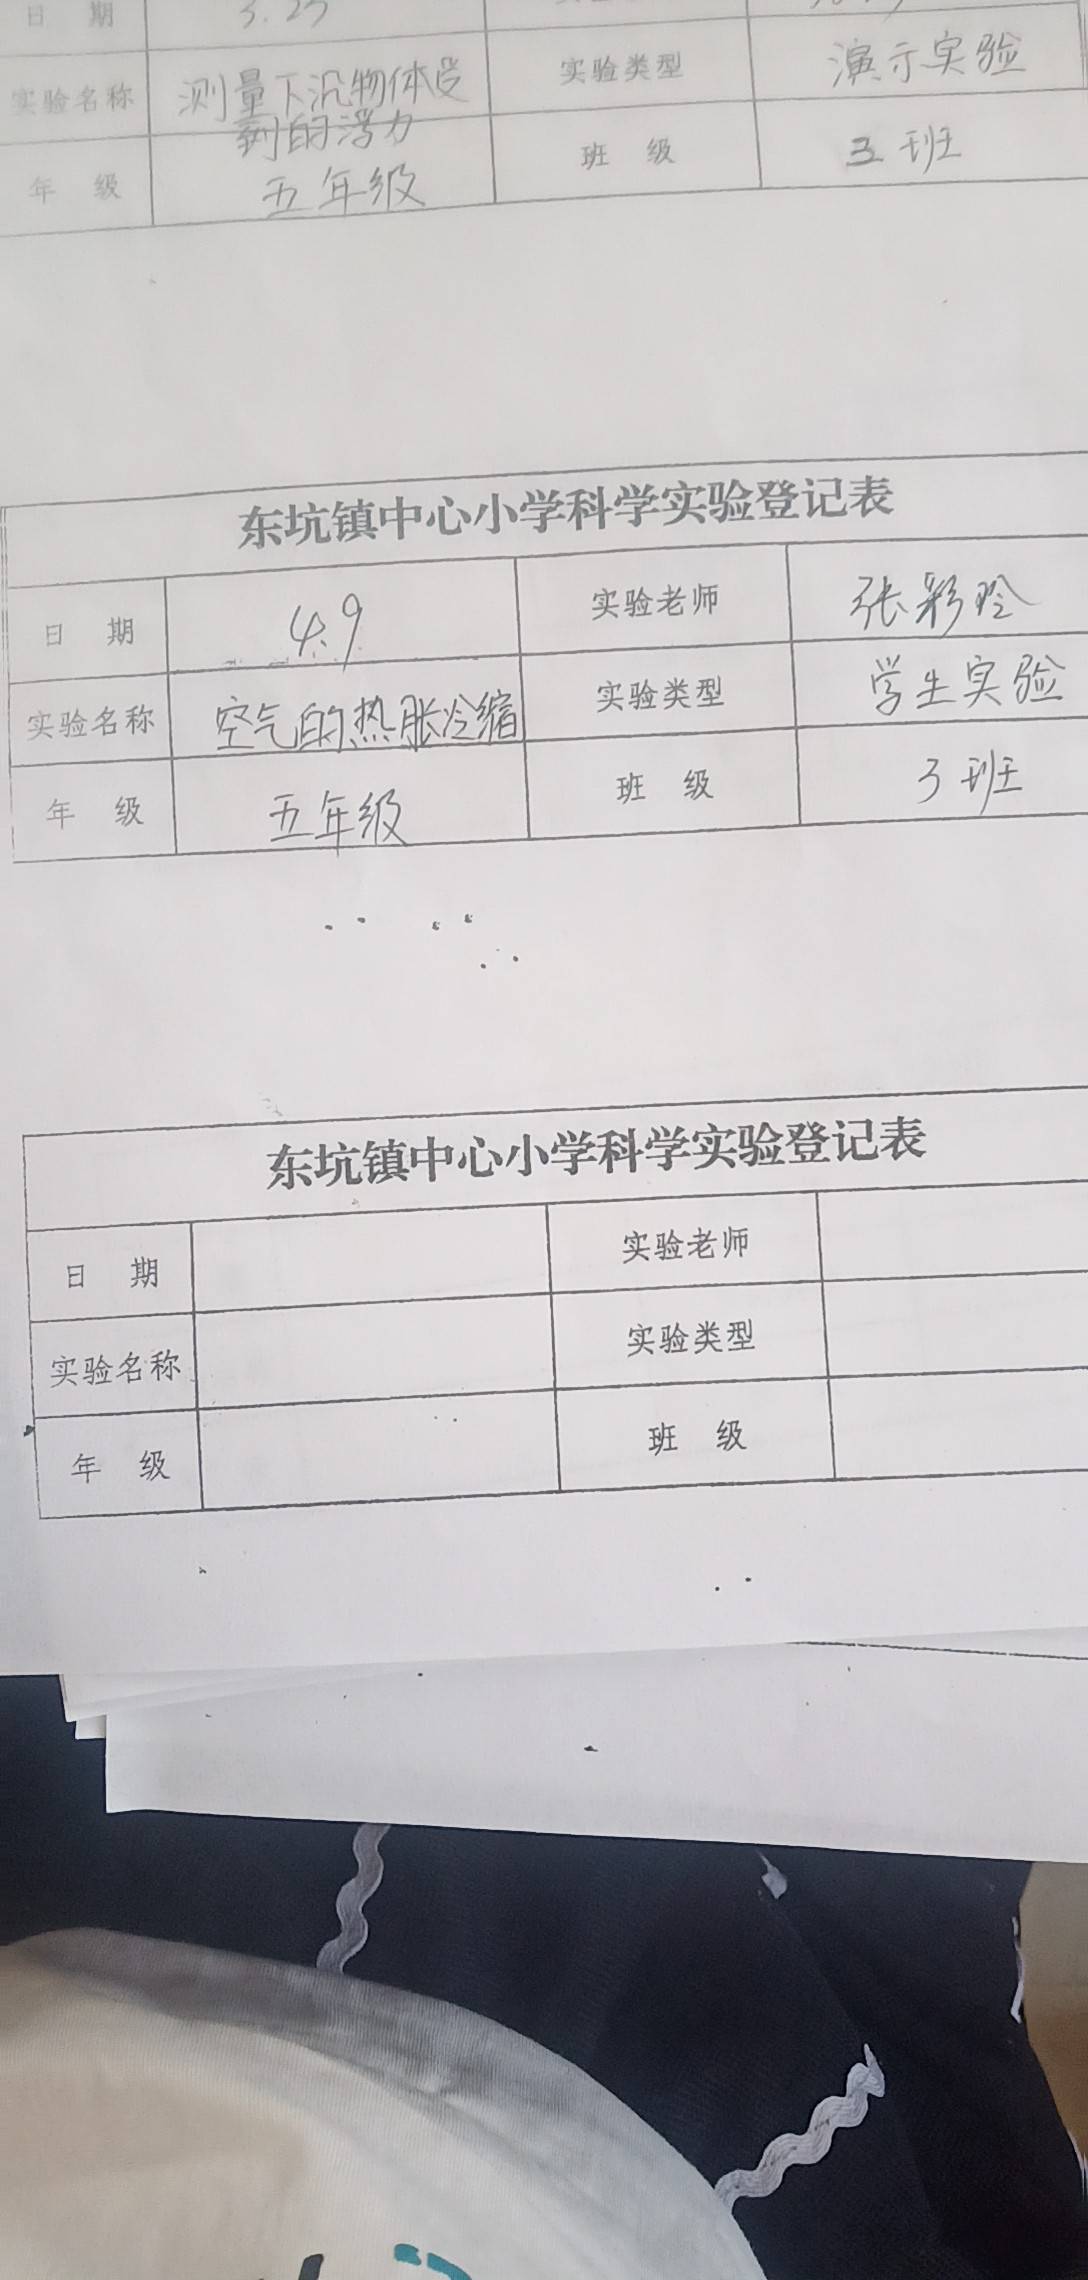 日 期 3.25
实验名称 测量下沉物体受 实验类型 演示实验
到的浮力
年 级 五年级 班 级 三班
东坑镇中心小学科学实验登记表
日 期 4.9 实验老师 张彩玲
实验名称 空气的热胀冷缩 实验类型 学生实验
年 级 五年级 班 级 3班
东坑镇中心小学科学实验登记表
日 期 实验老师
实验名称 实验类型
年 级 班 级